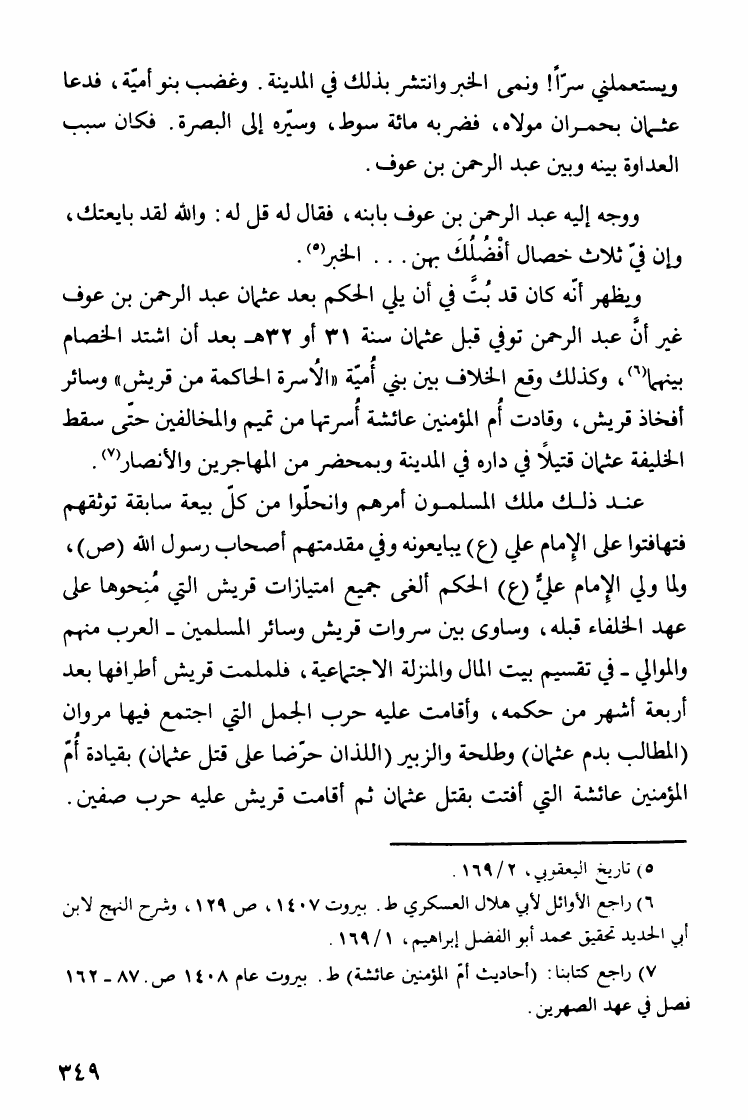 ويستعملني سرّاً! ونمى الخبر وانتشر بذلك في المدينة. وغضب بنو أميّة، فدعا
عثمان بحمران مولاه، فضربه مائة سوط، وسيّره إلى البصرة. فكان سبب
العداوة بينه وبين عبد الرحمن بن عوف.
ووجه إليه عبد الرحمن بن عوف بابنه، فقال له قل له: والله لقد بايعتك،
وإن فيّ ثلاث خصال أفْضُلُكَ بهن... الخبر(٥).
ويظهر أنّه كان قد بُتَّ في أن يلي الحكم بعد عثمان عبد الرحمن بن عوف
غير أنَّ عبد الرحمن توفي قبل عثمان سنة ٣١ أو ٣٢هـ بعد أن اشتد الخصام
بينهما(٦)، وكذلك وقع الخلاف بين بني أُميّة «الأسرة الحاكمة من قريش» وسائر
أفخاذ قريش، وقادت أُم المؤمنين عائشة أُسرتها من تميم والمخالفين حتّى سقط
الخليفة عثمان قتيلاً في داره في المدينة وبمحضر من المهاجرين والأنصار(٧).
عند ذلك ملك المسلمون أمرهم وانحلّوا من كلّ بيعة سابقة توثقهم
فتهافتوا على الإمام علي (ع) يبايعونه وفي مقدمتهم أصحاب رسول الله (ص)،
ولما ولي الإمام عليٌّ (ع) الحكم ألغى جميع امتيازات قريش التي مُنِحوها على
عهد الخلفاء قبله، وساوى بين سروات قريش وسائر المسلمين - العرب منهم
والموالي - في تقسيم بيت المال والمنزلة الاجتماعية، فلملمت قريش أطرافها بعد
أربعة أشهر من حكمه، وأقامت عليه حرب الجمل التي اجتمع فيها مروان
(المطالب بدم عثمان) وطلحة والزبير (اللذان حرّضا على قتل عثمان) بقيادة أُمّ
المؤمنين عائشة التي أفتت بقتل عثمان ثم أقامت قريش عليه حرب صفين.
٥) تاريخ اليعقوبي، ٢/١٦٩.
٦) راجع الأوائل لأبي هلال العسكري ط. بيروت ١٤٠٧، ص ١٢٩، وشرح النهج لابن
أبي الحديد تحقيق محمد أبو الفضل إبراهيم، ١/١٦٩.
٧) راجع كتابنا: (أحاديث أمّ المؤمنين عائشة) ط. بيروت عام ١٤٠٨ ص. ٨٧ - ١٦٢
فصل في عهد الصهرين.
٣٤٩